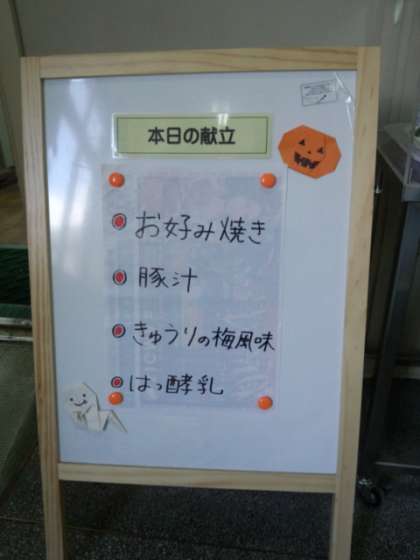 本日の献立
お好み焼き
豚汁
きゅうりの梅風味
はっ酵乳